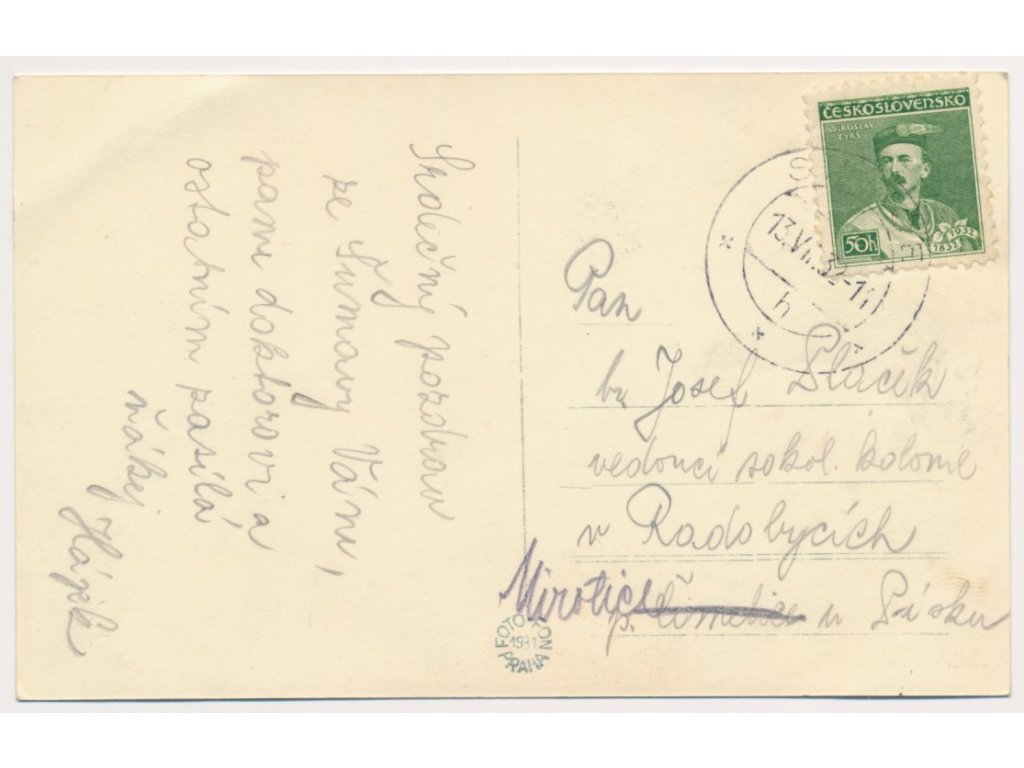 Srdečný pozdrav
ze Šumavy Vám,
pani doktorovi a
ostatním posílá
Hájek
ČESKOSLOVENSKO
MIROSLAV
TYRŠ
50h
1932
1832
13.VII.32-11
Pan
br. Josef Plaček
vedoucí sokol. kolonie
v Radobycích
Mirotice
p. Čimelice u Písku
FOTO FON
1931
PRAHA